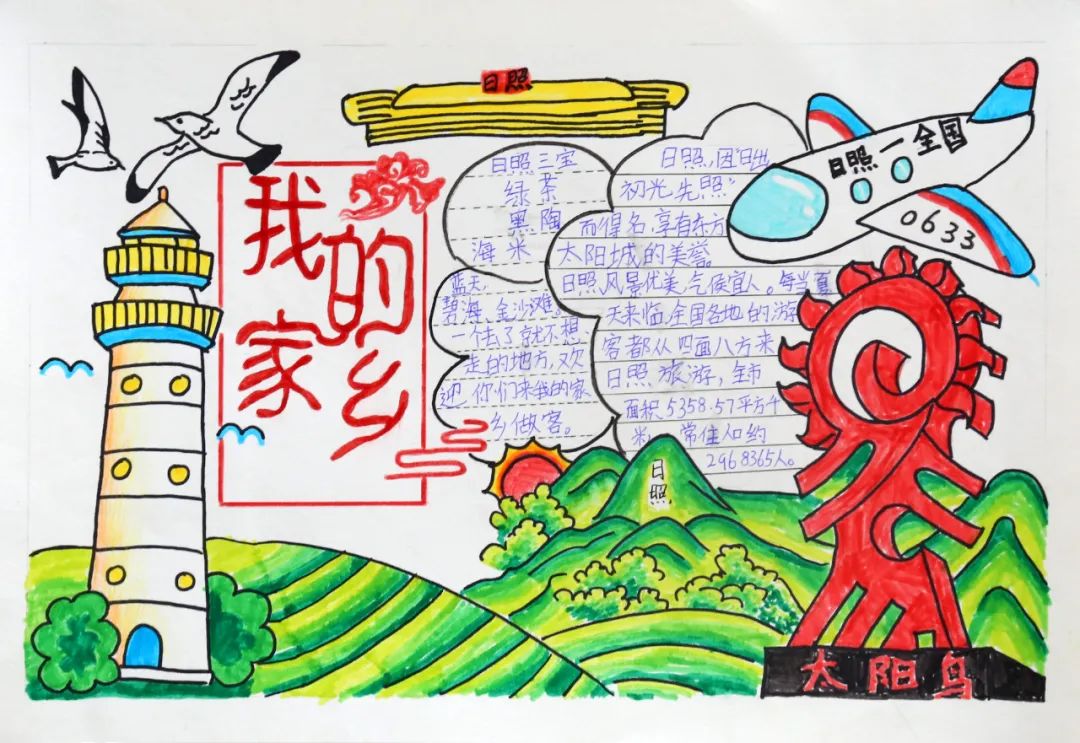 日照
我的家乡
日照三宝
绿茶
黑陶
海米
蓝天、
碧海、金沙滩。
一个去了就不想
走的地方,欢
迎你们来我的家
乡做客。
日照,因“日出
初光先照”
而得名,享有东方
太阳城的美誉。
日照风景优美,气候宜人。每当夏
天来临,全国各地的游
客都从四面八方来
日照旅游,全市
面积5358.57平方千
米,常住人口约
2968365人。
日照一全国
0633
日照
太阳鸟